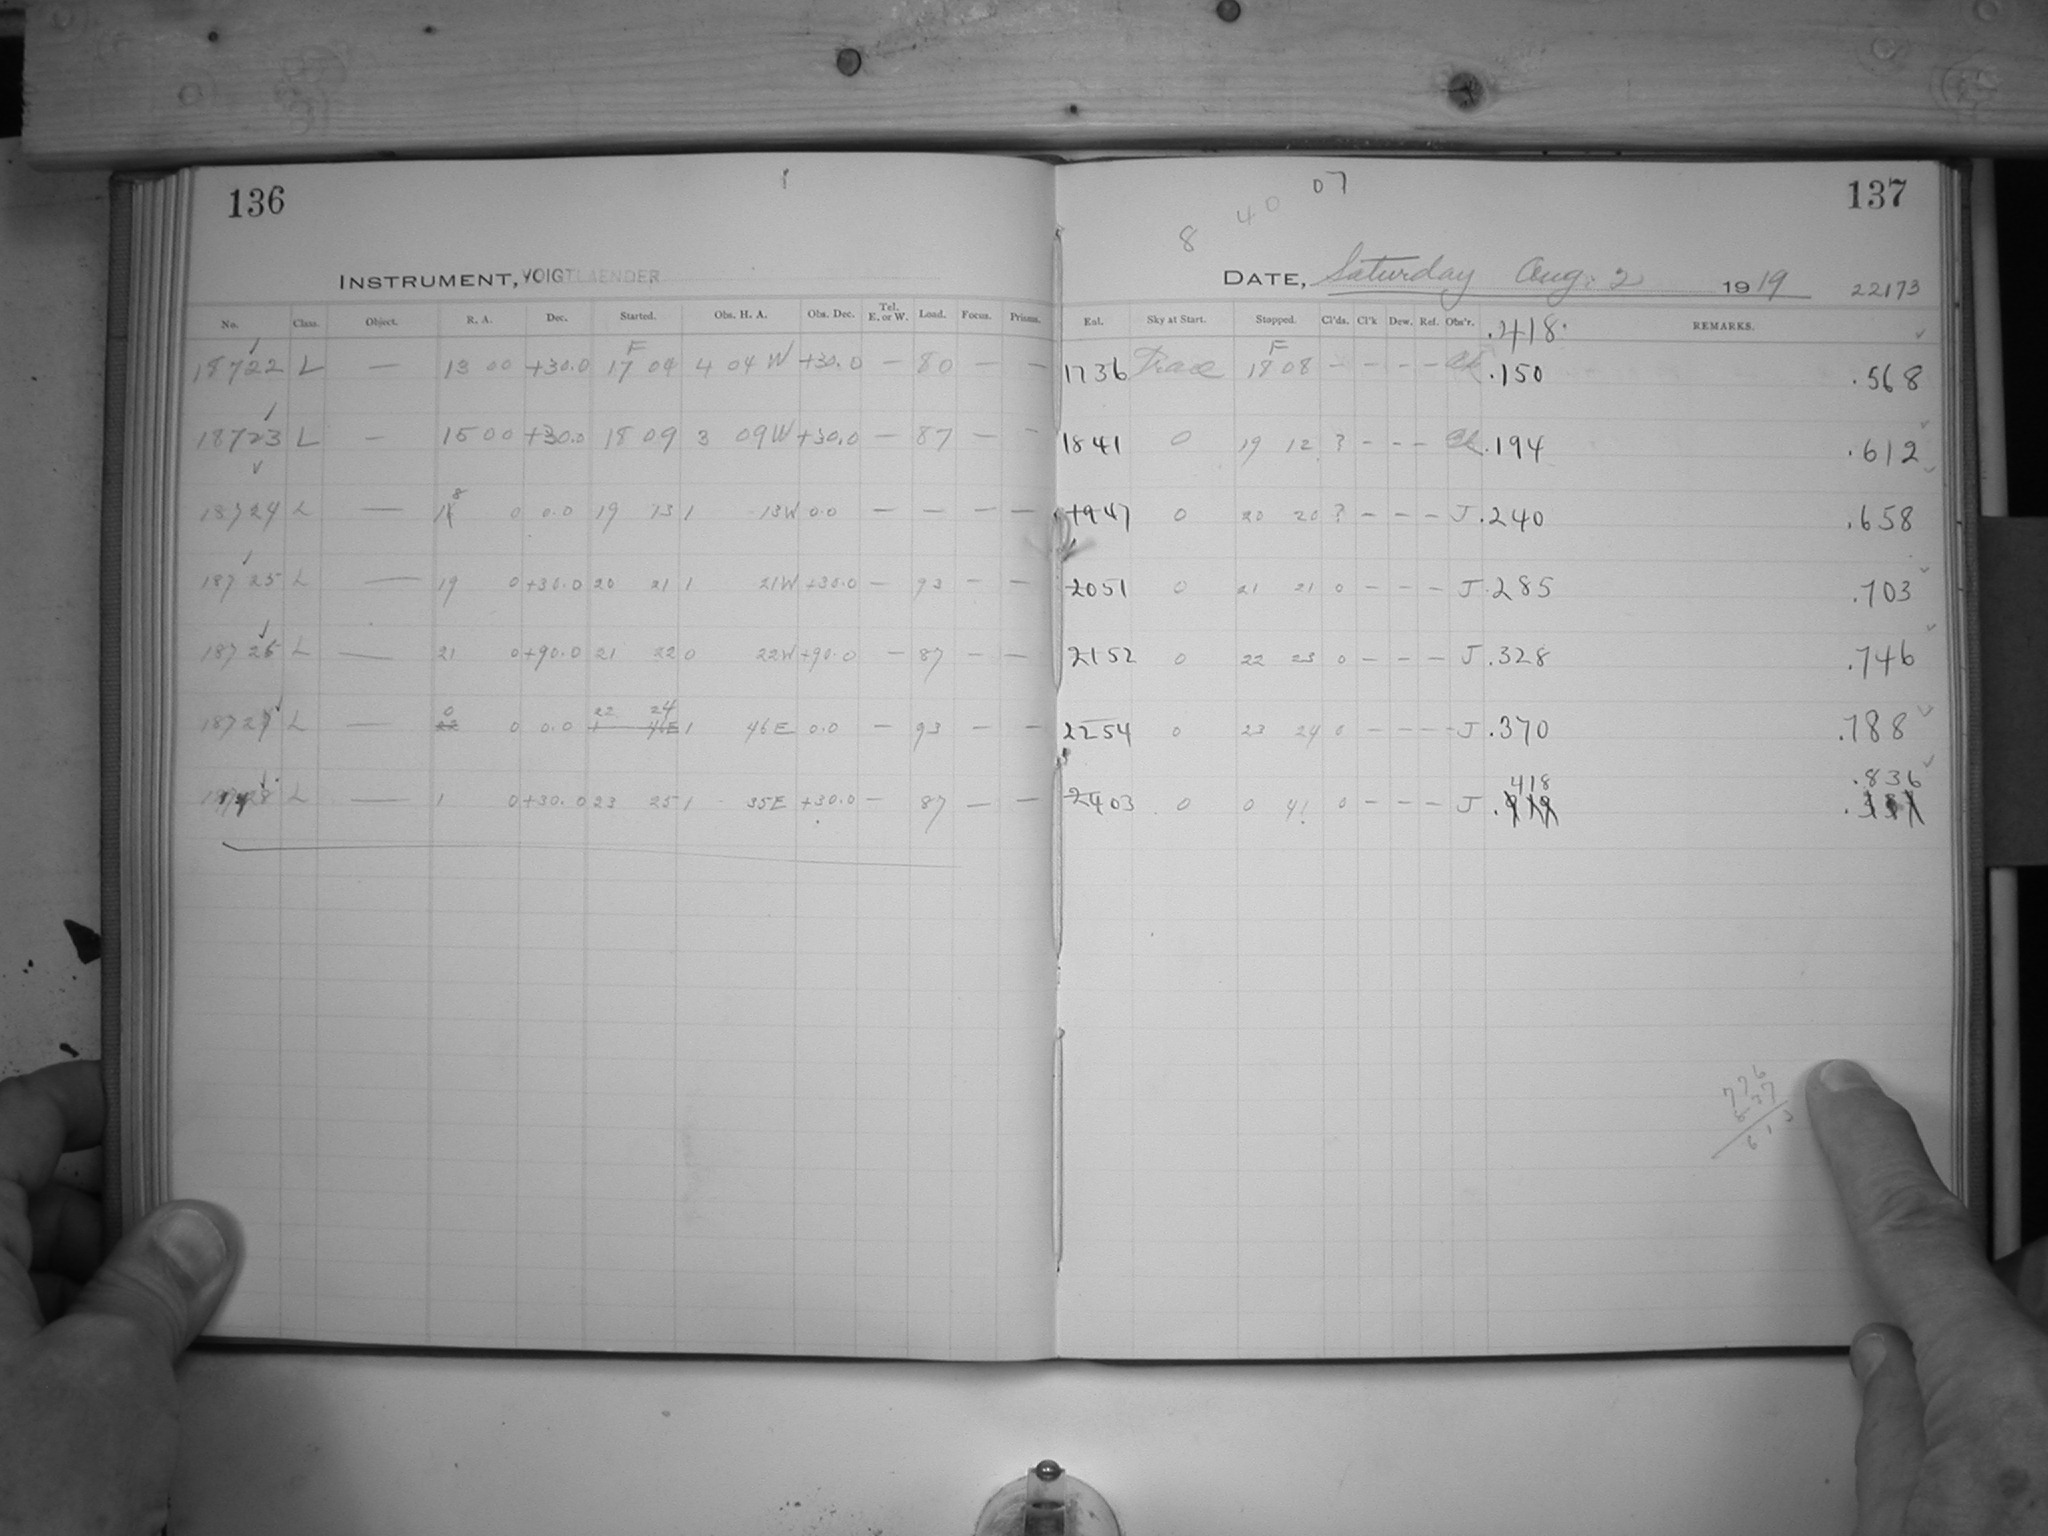 136
INSTRUMENT, VOIGTLAENDER
No. Class. Object. R. A. Dec. Started. Obs. H. A. Obs. Dec. Tel. E. or W. Load. Focus. Prisms.
18722 L — 13 00 +30.0 F 17 04 4 04 W +30.0 — 80 — —
18723 L — 15 00 +30.0 18 09 3 09 W +30.0 — 87 — —
18724 L — 18 0 0.0 19 13 1 13W 0.0 — — — —
18725 L — 19 0 +30.0 20 21 1 21W +30.0 — 93 — —
18726 L — 21 0 +90.0 21 22 0 22W +90.0 — 87 — —
18727 L — 0 22 0 0.0 22 24 1 46E 1 46E 0.0 — 93 — —
18728 L — 1 0 +30.0 23 25 1 35E +30.0 — 87 — —
137
8 40 07
DATE, Saturday Aug. 2 1919 22173
Eal. Sky at Start. Stopped. Cl'ds. Cl'k Dew. Ref. Obs'r. .418 REMARKS.
1736 F 18 08 – – – – .150 .568
1841 0 19 12 ? – – – .194 .612
1947 0 20 20 ? – – – J .240 .658
2051 0 21 21 0 – – – J .285 .703
2152 0 22 23 0 – – – J .328 .746
2254 0 23 24 0 – – – J .370 .788
2403 0 0 41 0 – – – J .418 .836
776
613